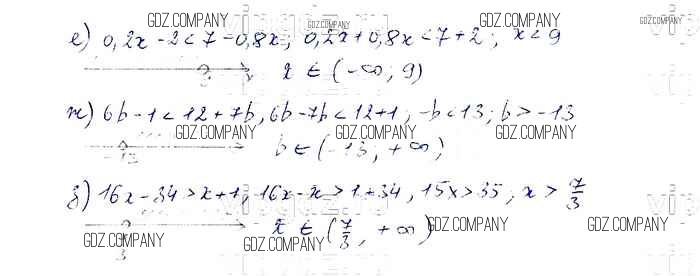 е) 0,2x - 2 < 7 - 0,8x; 0,2x + 0,8x < 7 + 2; x < 9
9 x x ∈ (-∞; 9)
ж) 6b - 1 < 12 + 7b, 6b - 7b < 12 + 1; -b < 13; b > -13
-13 b ∈ (-13; +∞)
з) 16x - 34 > x + 1, 16x - x > 1 + 34, 15x > 35; x > 7/3
7/3 x ∈ (7/3, +∞)
GDZ.COMPANY GDZ.COMPANY GDZ.COMPANY GDZ.COMPANY
GDZ.COMPANY GDZ.COMPANY GDZ.COMPANY
GDZ.COMPANY GDZ.COMPANY GDZ.COMPANY
GDZ.COMPANY GDZ.COMPANY GDZ.COMPANY
GDZ.COMPANY GDZ.COMPANY GDZ.COMPANY